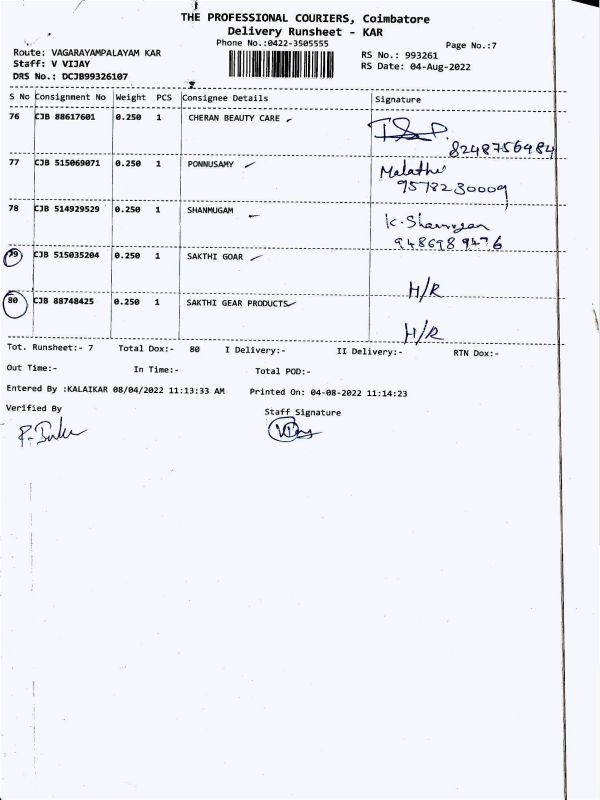 THE PROFESSIONAL COURIERS, Coimbatore
Delivery Runsheet - KAR
Phone No.:0422-3505555
Page No.:7
Route: VAGARAYAMPALAYAM KAR
RS No.: 993261
Staff: V VIJAY
RS Date: 04-Aug-2022
DRS No.: DCJB99326107
S No Consignment No Weight PCS Consignee Details Signature
76 CJB 88617601 0.250 1 CHERAN BEAUTY CARE
8248756484
77 CJB 515069071 0.250 1 PONNUSAMY Malathi
9578230009
78 CJB 514929529 0.250 1 SHANMUGAM
K. Shanmugam
9486989476
79 CJB 515035204 0.250 1 SAKTHI GOAR
H/R
80 CJB 88748425 0.250 1 SAKTHI GEAR PRODUCTS
H/R
Tot. Runsheet:- 7 Total Dox:- 80 I Delivery:- II Delivery:- RTN Dox:-
Out Time:- In Time:- Total POD:-
Entered By :KALAIKAR 08/04/2022 11:13:33 AM Printed On: 04-08-2022 11:14:23
Verified By Staff Signature